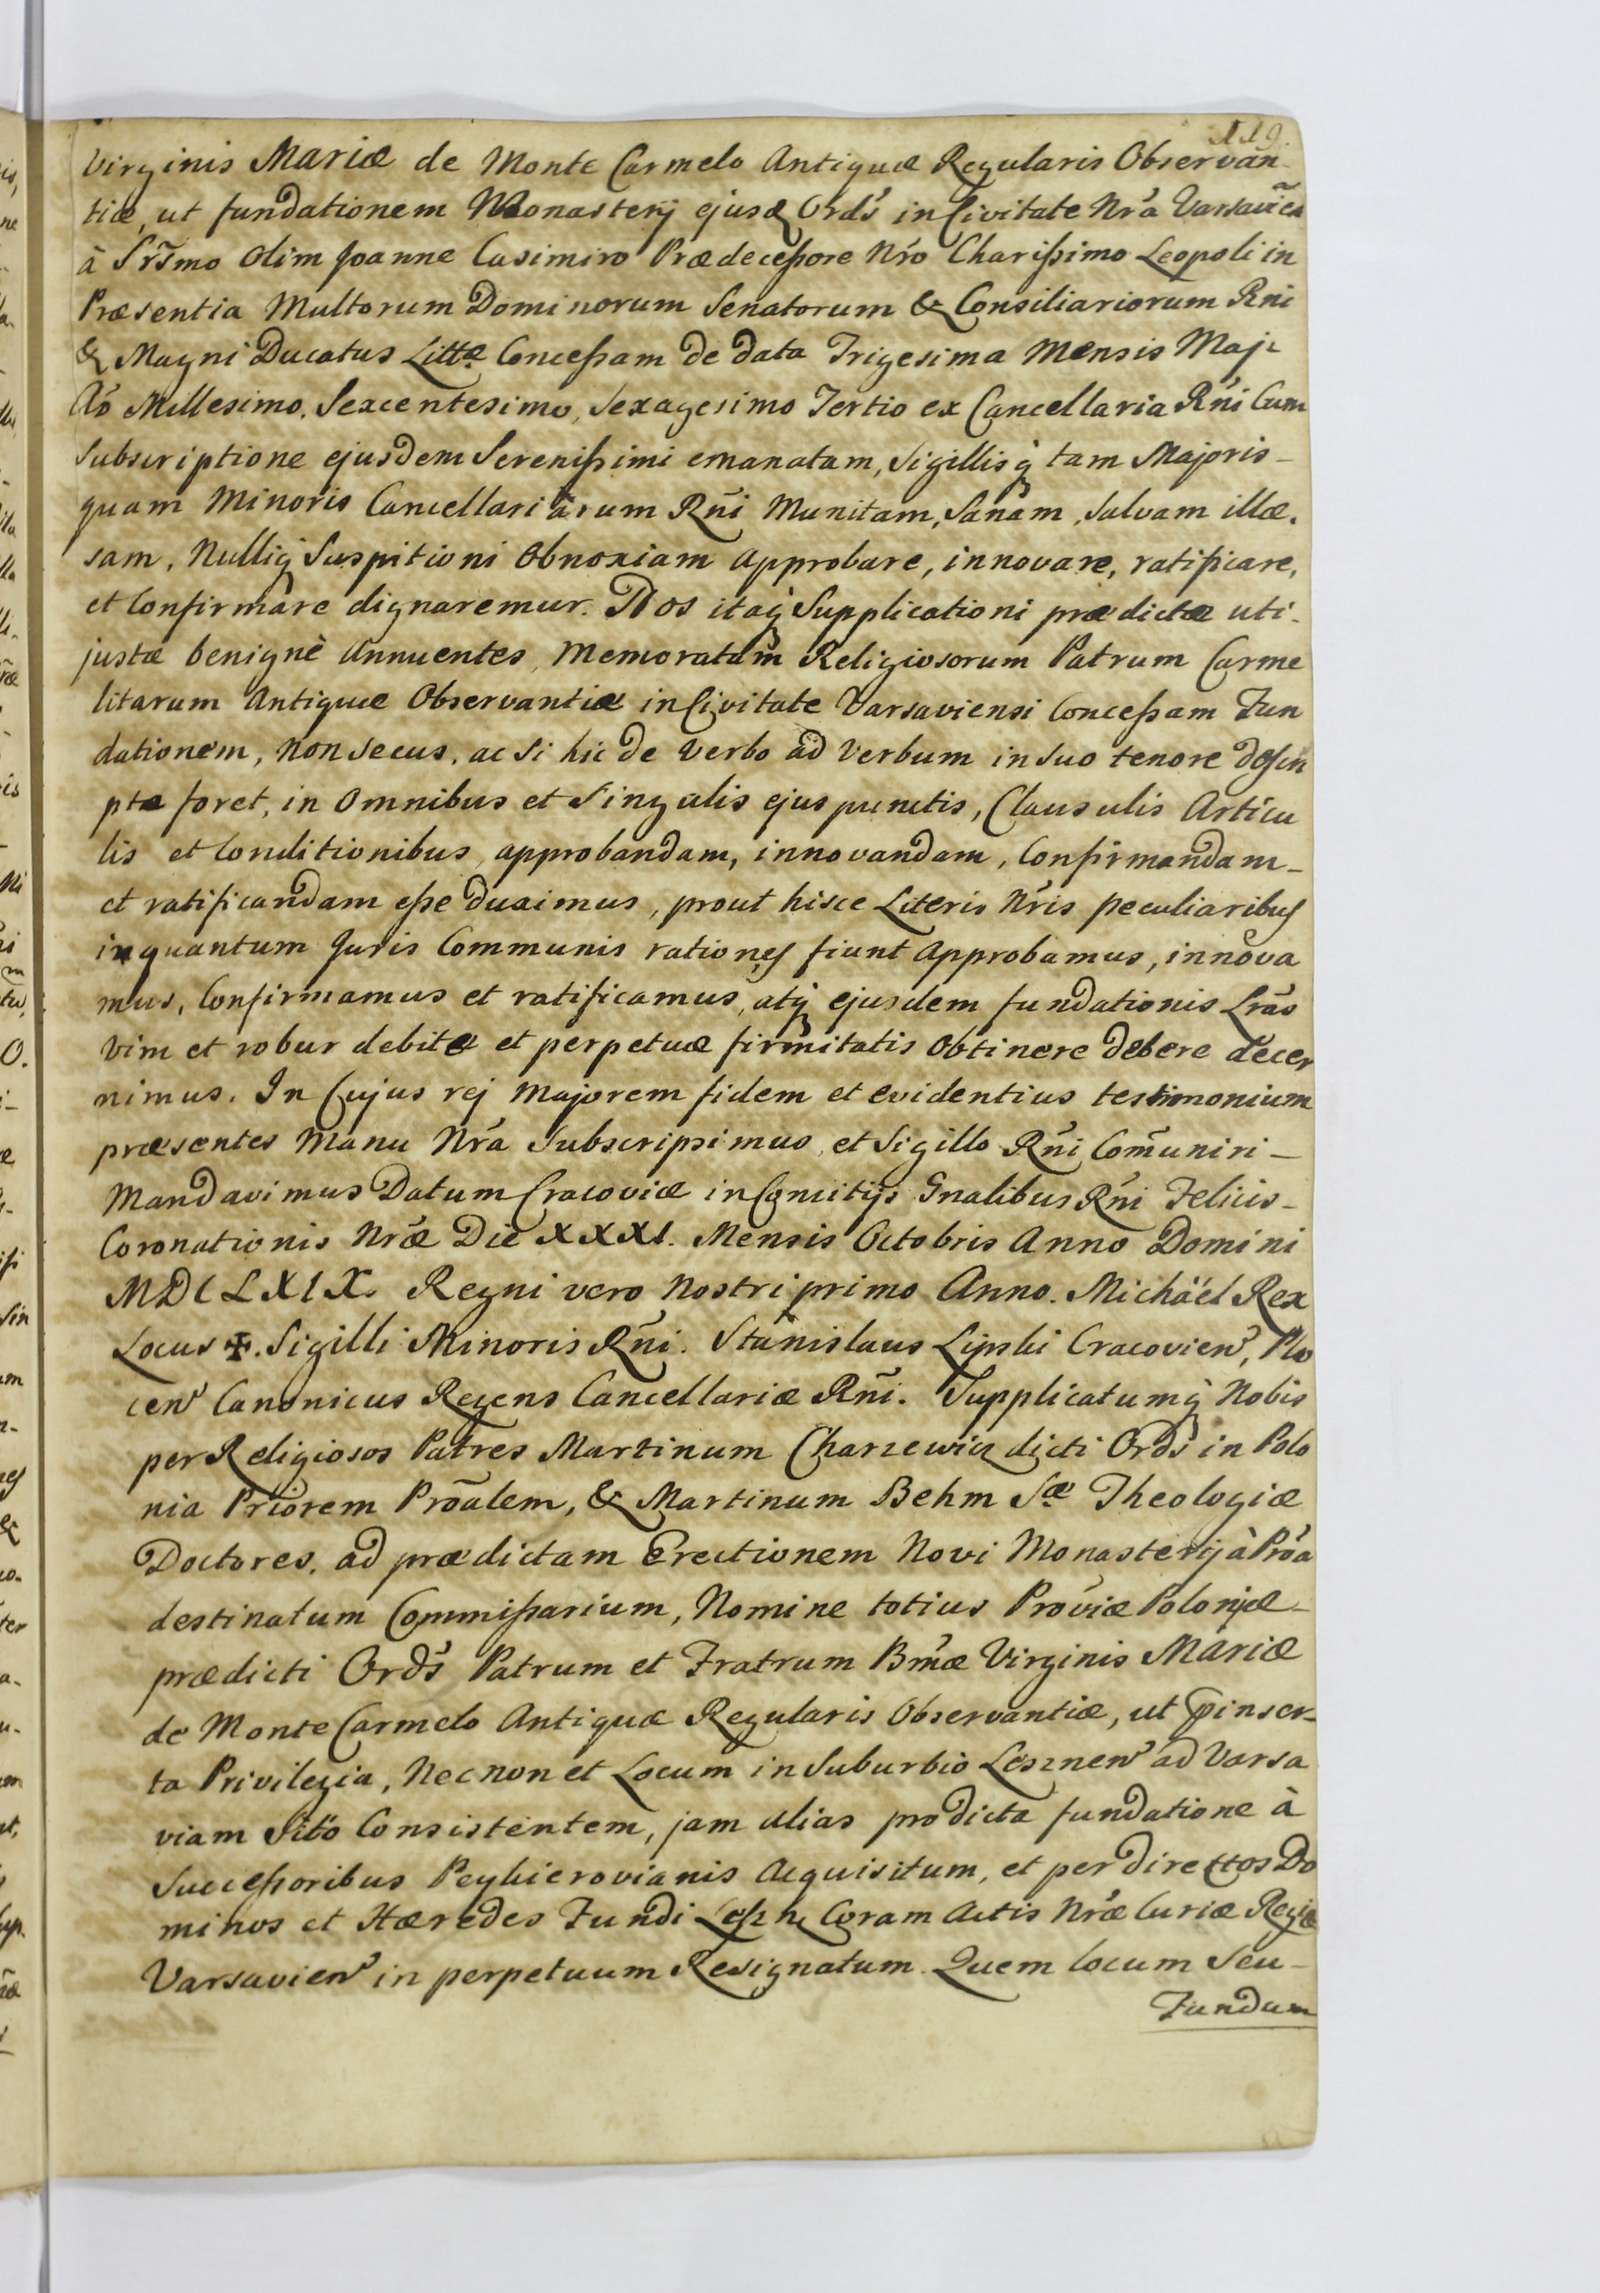 119.
Virginis Mariæ de Monte Carmelo Antiquæ Regularis Observan-
tiæ, ut fundationem Monasterij ejusq Ord's in Civitate Nr̃a Varsavien̄
à Sr̃mo Olim Joanne Casimiro Prædeceßore Nr̃o Charißimo Leopoli in
Præsentia Multorum Dominorum Senatorum & Consiliariorum Rñi
& Magni Ducatus Littæ Conceßam de data Trigesima Mensis Maji
Aõ Millesimo, Sexcentesimo, Sexagesimo Tertio ex Cancellaria Rñi Cum
Subscriptione ejusdem Serenißimi emanatam, Sigillisq́ tam Majoris-
quam Minoris Cancellariarum Rñi Munitam, Sanam, Salvam illæ-
sam, Nulliq́ Suspitioni Obnoxiam Approbare, innovare, ratificare,
et Confirmare dignaremur. Nos itaq́ Supplicationi prædictæ uti-
justæ benignè Annuentes, Memoratam Religiosorum Patrum Carme
litarum Antiquæ Observantiæ in Civitate Varsaviensi Conceßam Fun
dationem, non secus, ac si hic de Verbo ad Verbum in suo tenore descri
pta foret, in Omnibus et Singulis ejus punctis, Clausulis Articu
lis et Conditionibus, approbandam, innovandam, Confirmandam-
et ratificandam eße duximus, prout hisce Literis Nr̃is peculiaribus
inquantum Juris Communis rationes fiunt Approbamus, innova
mus, Confirmamus et ratificamus, atq́ ejusdem fundationis Lr̃as
Vim et robur debitæ et perpetuæ firmitatis Obtinere debere decer
nimus. In Cujus rej Majorem fidem et evidentius testimonium
præsentes Manu Nr̃a Subscripsimus, et Sigillo Rñi Com̃uniri-
Mandavimus Datum Cracoviæ in Comitijs Gnalibus Rñi Felicis-
Coronationis Nr̃æ Die XXXI. Mensis Octobris Anno Domini
MDCLXIX. Regni vero Nostri primo Anno. Michäel Rex
Locus ✠. Sigilli Minoris Rñi. Stanislaus Lipski Cracovien̄, Plo
cen̄ Canonicus Regens Cancellariæ Rñi. Supplicatumq́ Nobis
per Religiosos Patres Martinum Charzewicz dicti Ord's in Polo
nia Priorem Prõalem, & Martinum Behm Sæ Theologiæ
Doctores, ad prædictam Erectionem Novi Monasterij à Prõa
destinatum Commißarium, Nomine totius Prõviæ Polonjæ-
prædicti Ord's Patrum et Fratrum Bm̃æ Virginis Mariæ
de Monte Carmelo Antiquæ Regularis Observantiæ, ut p̱inser-
ta Privilegia, Necnon et Locum in Suburbio Lesznen̄ ad Varsa
viam Sitõ Consistentem, jam alias pro dicta fundatione à
Succeßoribus Peykierovianis Acquisitum, et per directos Do
minos et Hæredes Fundi Coram Actis Nr̃æ Curiæ Regiæ
Varsavien̄ in perpetuum Resignatum. Quem locum Seu-
Fundum